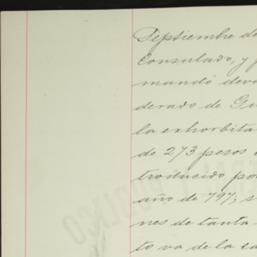 Septiembre de
Consulado, y
mandó
derado de
la exhorbita
de 273 pesos
troducido po
año de 797; s
nes de tanta
to va de la ca